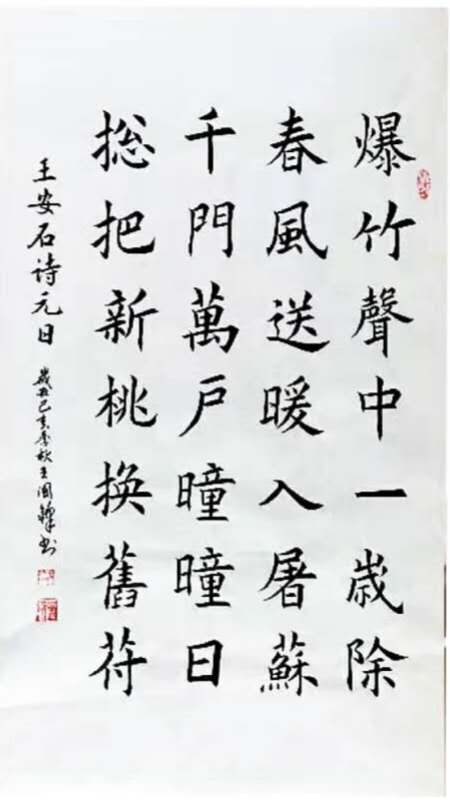 爆竹聲中一歲除
春風送暖入屠蘇
千門萬戶曈曈日
揔把新桃换舊苻
王安石诗元日
歲在己亥季秋王國